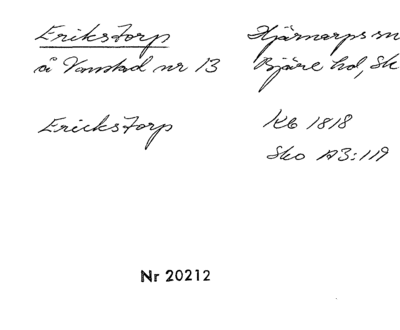 Erikstorp
Hjärnarps sn
å Vanstad nr 13
Bjäre hd, Sk
Erickstorp
KB 1818
Sko A3:119
Nr 20212